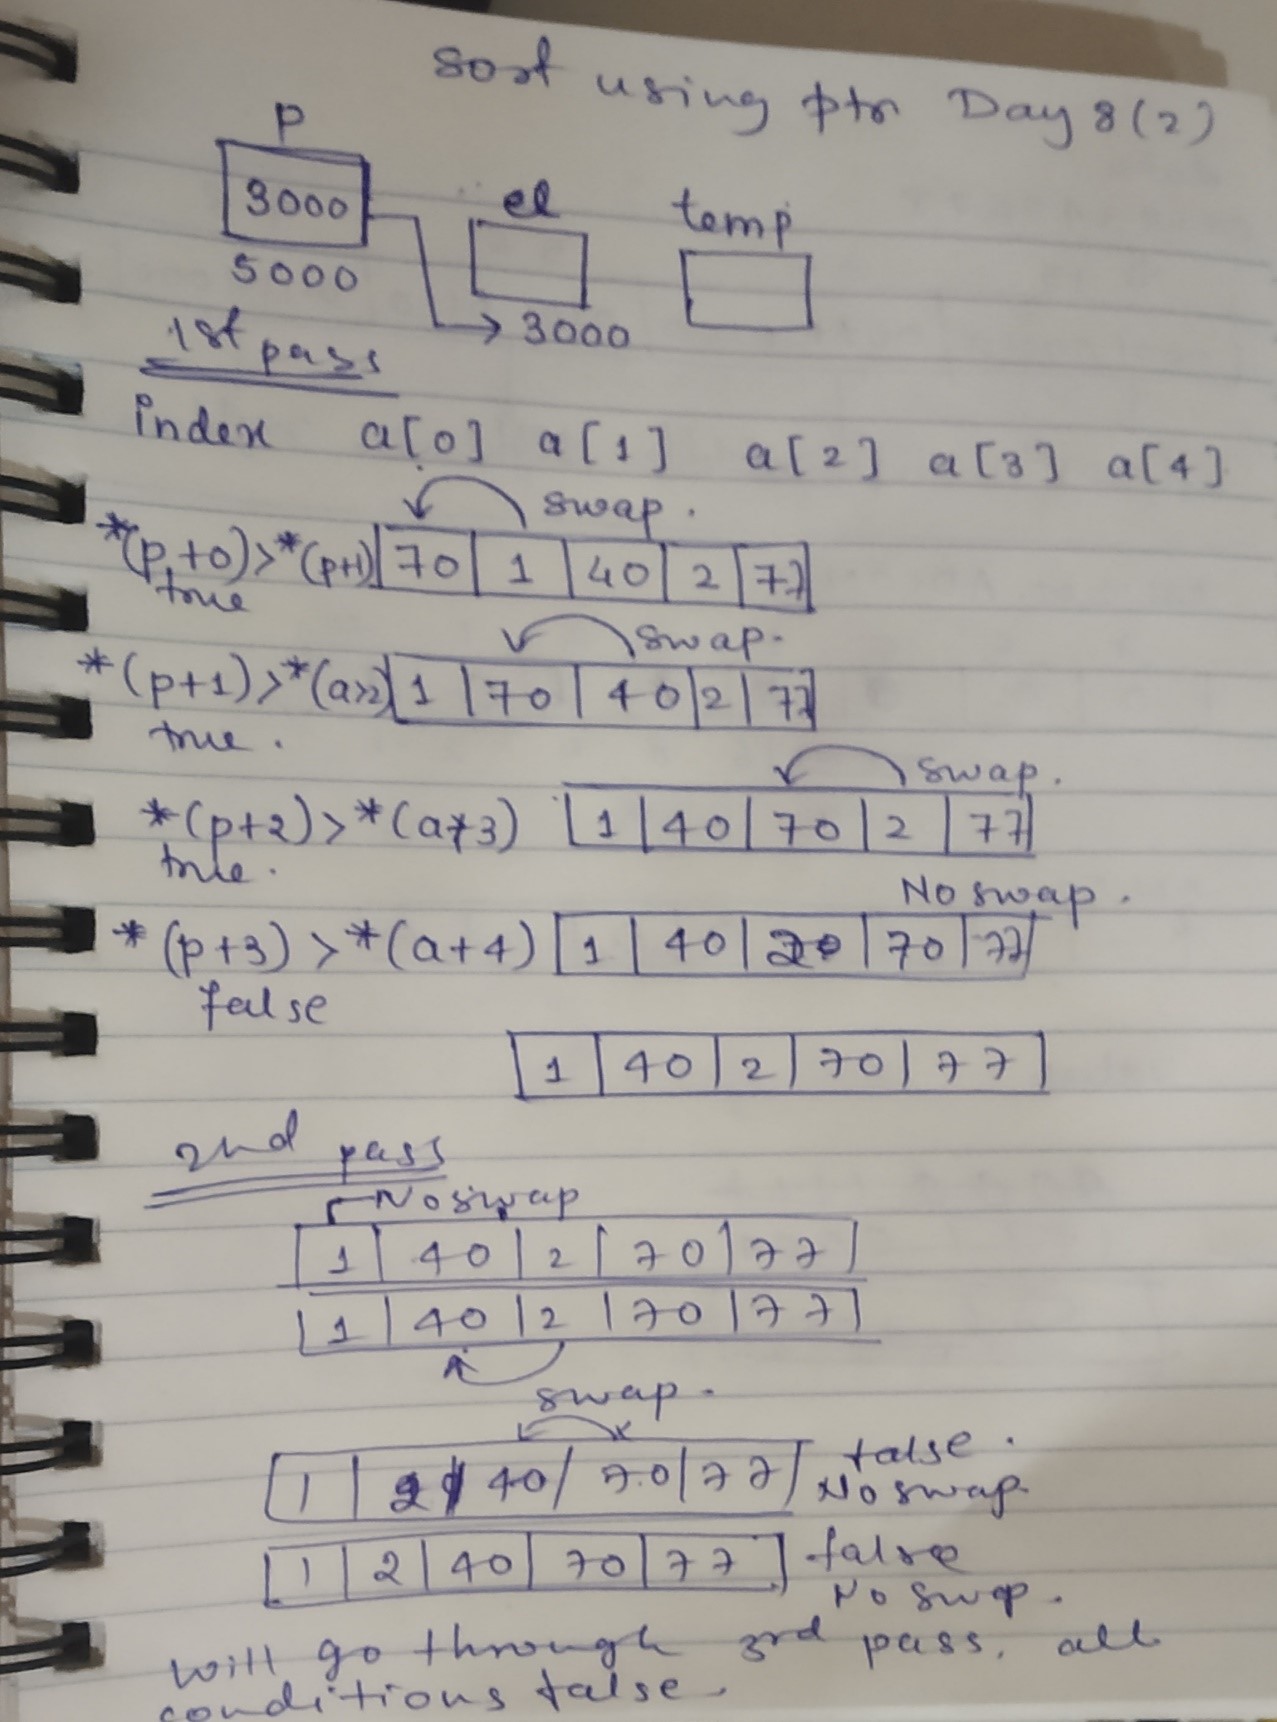 sort using ptr Day 8(2)
p
3000
5000
el
temp
→ 3000
1st pass
index a[0] a[1] a[2] a[3] a[4]
swap.
*(p+0)>*(p+1) 70 1 40 2 77
true
swap.
*(p+1)>*(a+2) 1 70 40 2 77
true.
swap.
*(p+2)>*(a+3) 1 40 70 2 77
true.
No swap.
*(p+3)>*(a+4) 1 40 2 70 77
false
1 40 2 70 77
2nd pass
No swap
1 40 2 70 77
1 40 2 70 77
swap.
1 2 40 70 77 false.
No swap
1 2 40 70 77 false
No swap.
will go through 3rd pass, all
conditions false.